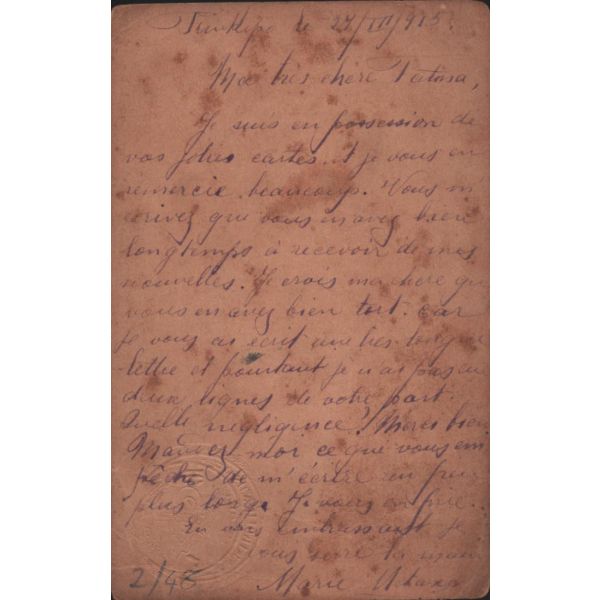 le 27/III/915.
Ma très chère
Je suis en possession de
vos jolies cartes. et je vous en
remercie beaucoup. Vous m
écrivez que vous en avez bien
longtemps à recevoir de mes
nouvelles. Je crois ma chère que
vous en avez bien tort. car
je vous ai écrit une très longue
lettre et pourtant je n ai pas eu
deux lignes de votre part.
Quelle négligence!
moi ce que vous em
pêche de m'écrire un peu
plus long. Je vous en prie.
En vous embrassant je
vous serre la main
2/48 Marie